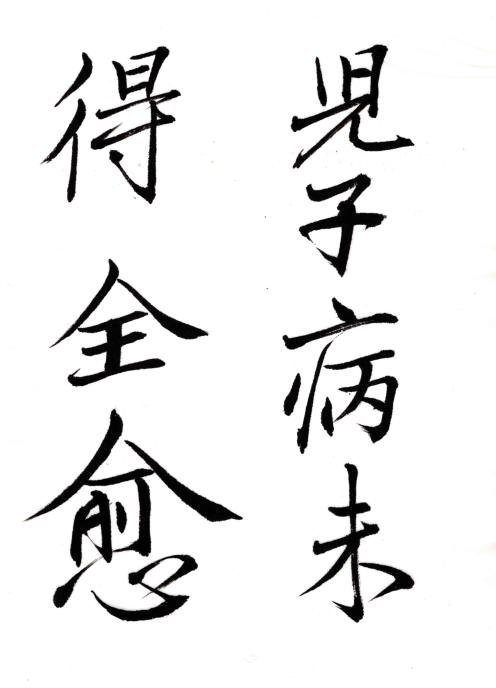 児子病未
得全愈